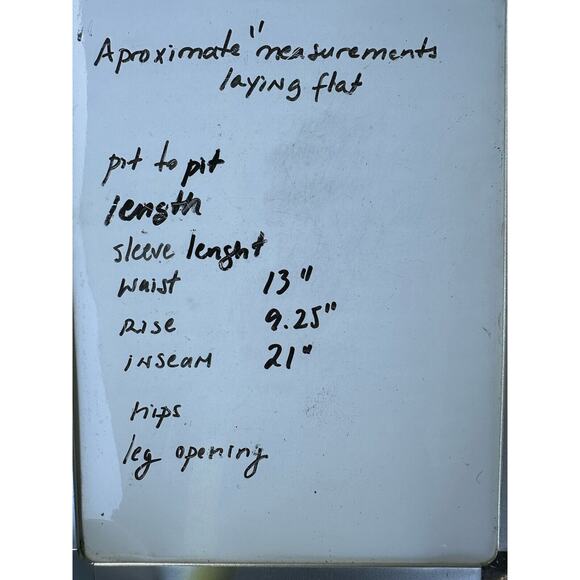 Aproximate "measurements
laying flat
pit to pit
length
sleeve lenght
waist 13"
Rise 9.25"
inseam 21"
hips
leg opening